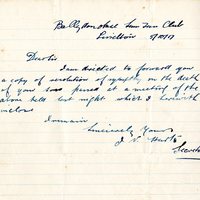 Ballymackel Sinn Fein Club
Dear Sir
I am directed to forward you
a copy of resolution of sympathy on the death
of your son passed at a meeting of the
above held last night which I herewith
enclose
I remain
Sincerely Yours